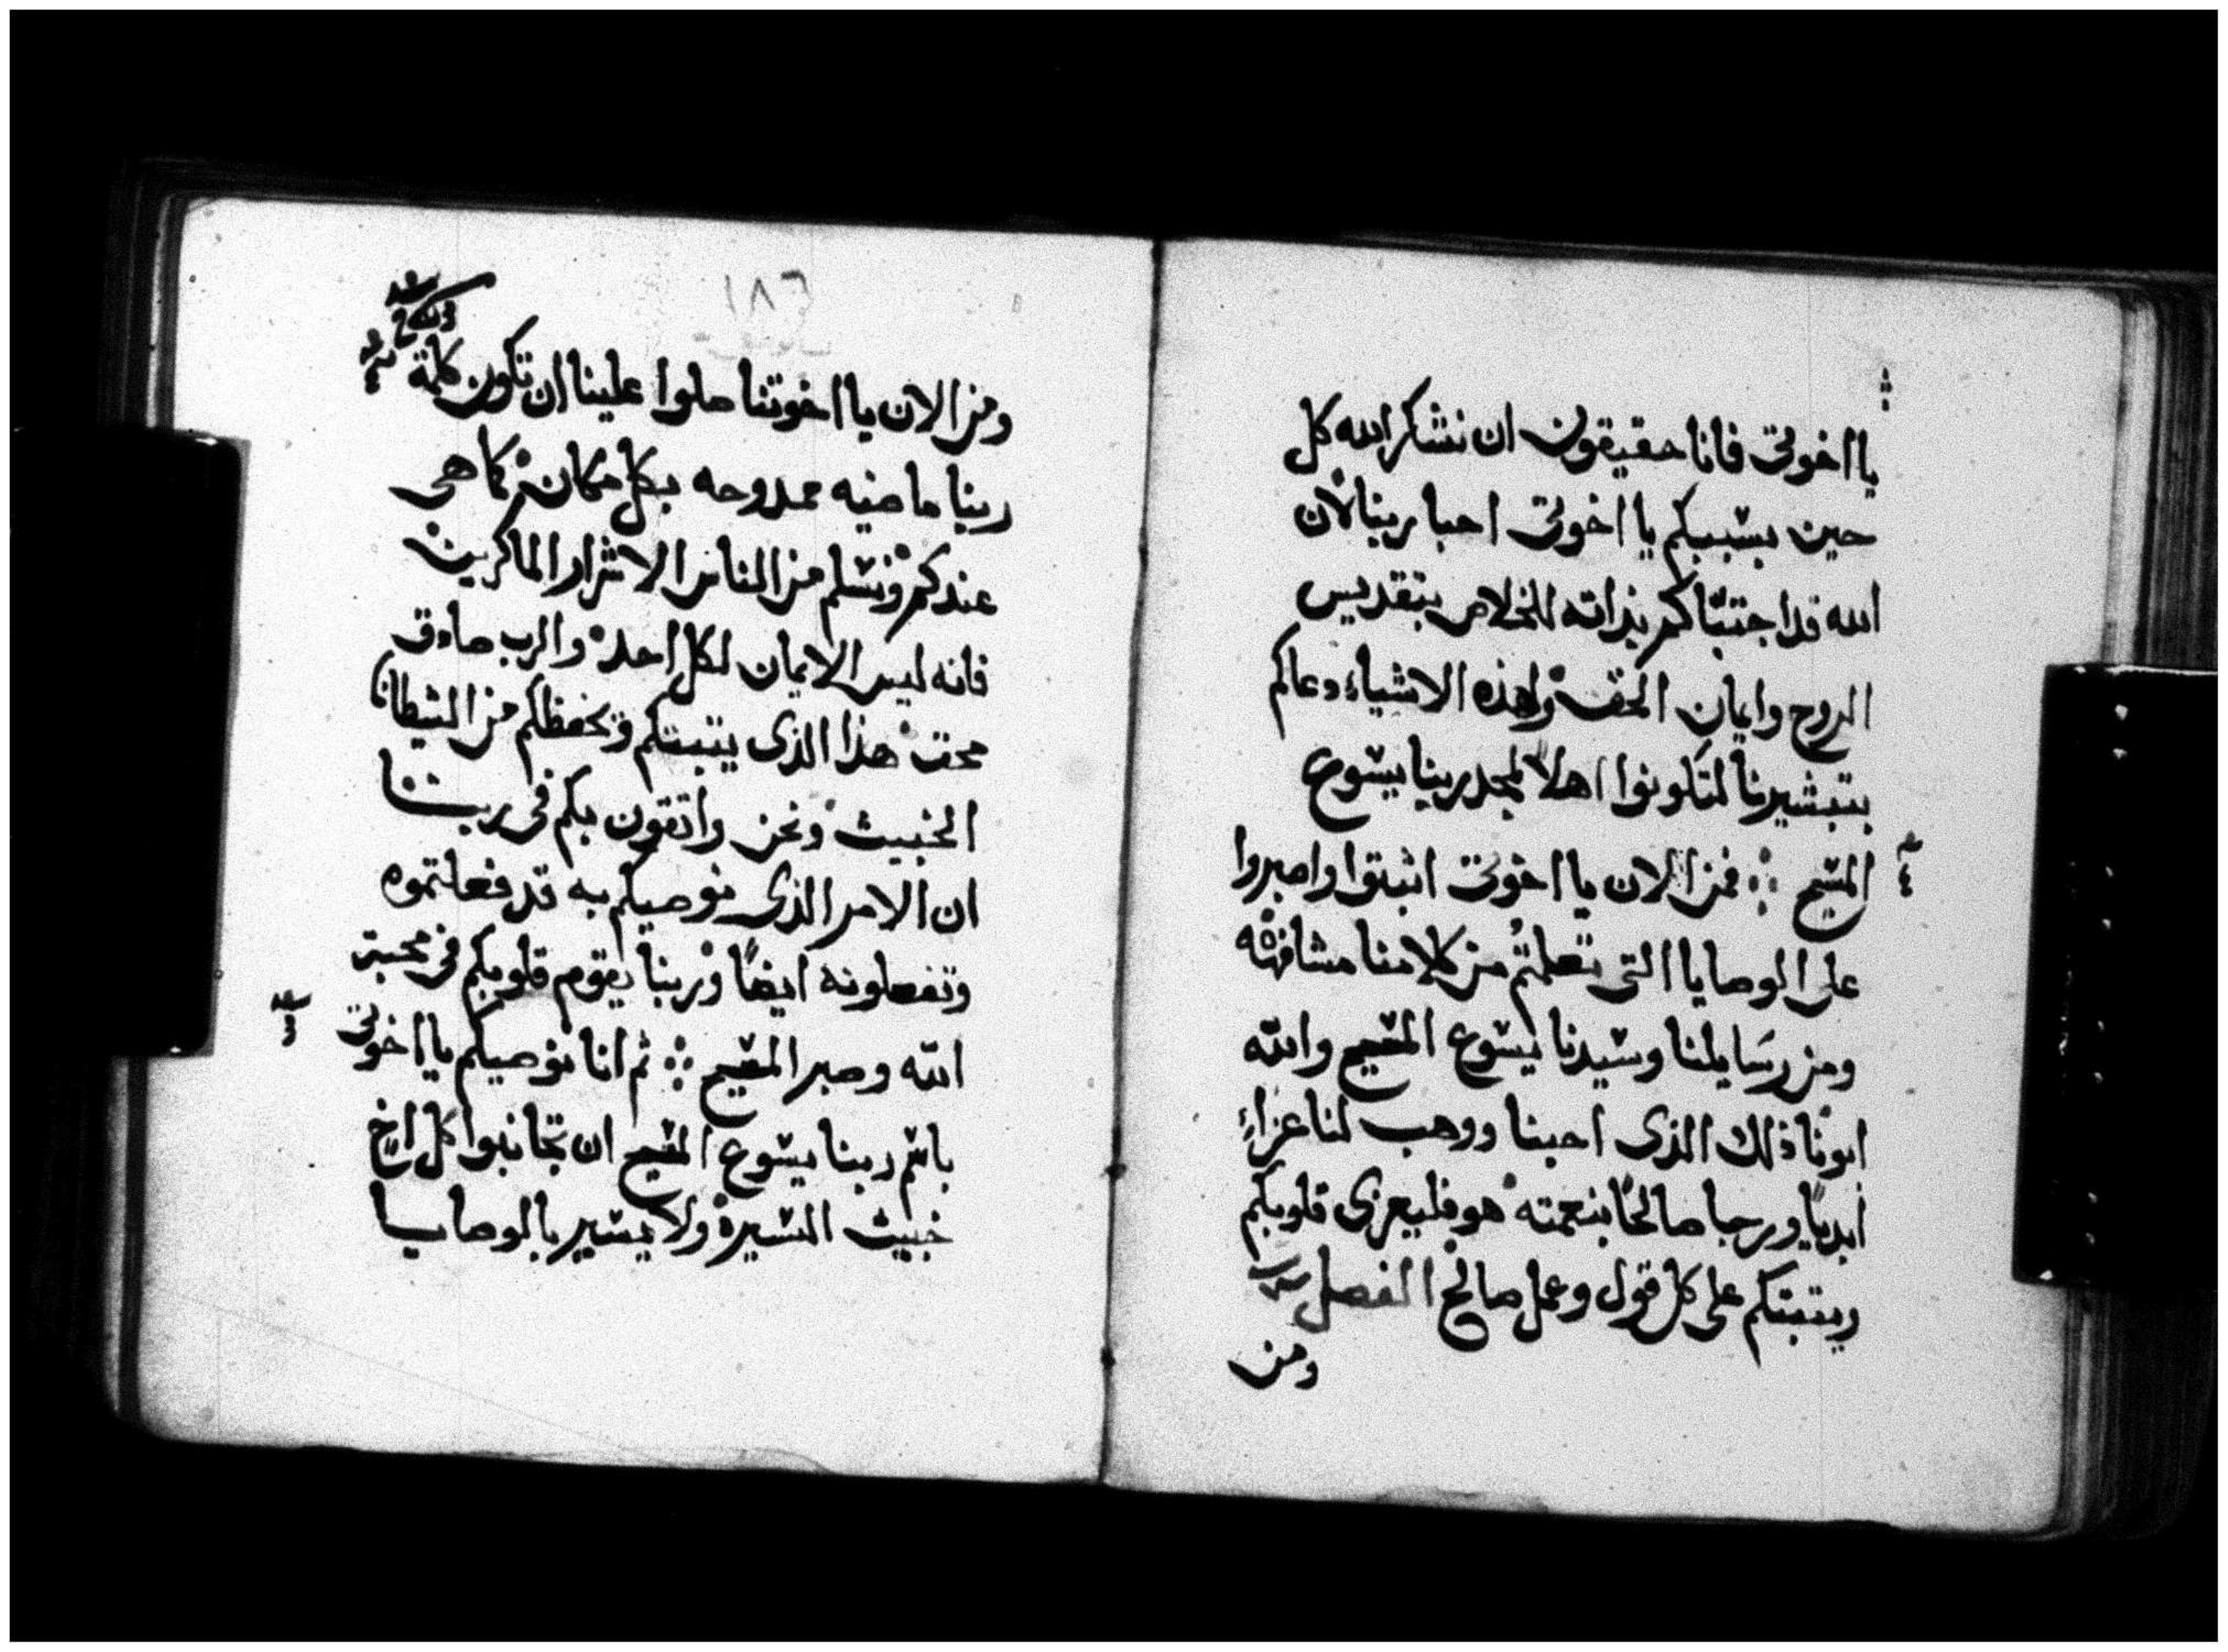 يا اخوتى فانا حقيقون ان نشكر الله كل
حين بسببكم يا اخوتى احبا ربنا لان
الله قد اجتباكم بذاته للخلاص بتقديس
الروح وايمان الحق ولهذه الاشياء دعاكم
بتبشيرنا لتكونوا اهلا لمجد ربنا يسوع
المسيح ፨ فمن الان يا اخوتى اثبتوا واصبروا
على الوصايا التى تعلمتم من كلامنا مشافهة
ومن رسايلنا وسيدنا يسوع المسيح والله
ابونا ذلك الذى احبنا ووهب لنا عزاء
ابديا ورجا صالحا بنعمته هو فليعزى قلوبكم
ويثبتكم على كل قول وعمل صالح الفصل
ومن
١٨٦
ومن الان يا اخوتنا صلوا علينا ان تكون كلمة
ربنا ماضيه ممدوحه بكل مكان كما هى
عندكم ونسلم من الناس الاشرار الماكرين
فانه ليس الايمان لكل احد والرب صادق
محق هذا الذى يثبتكم ويحفظكم من الشيطان
الخبيث ونحن واثقون بكم فى ربنا
ان الامر الذى نوصيكم به قد فعلتموه
وتفعلونه ايضا وربنا يقوم قلوبكم فى محبة
الله وصبر المسيح ፨ ثم انا نوصيكم يا اخوتى
باسم ربنا يسوع المسيح ان تجانبوا كل اخ
خبيث السيرة ولا يسير بالوصايا